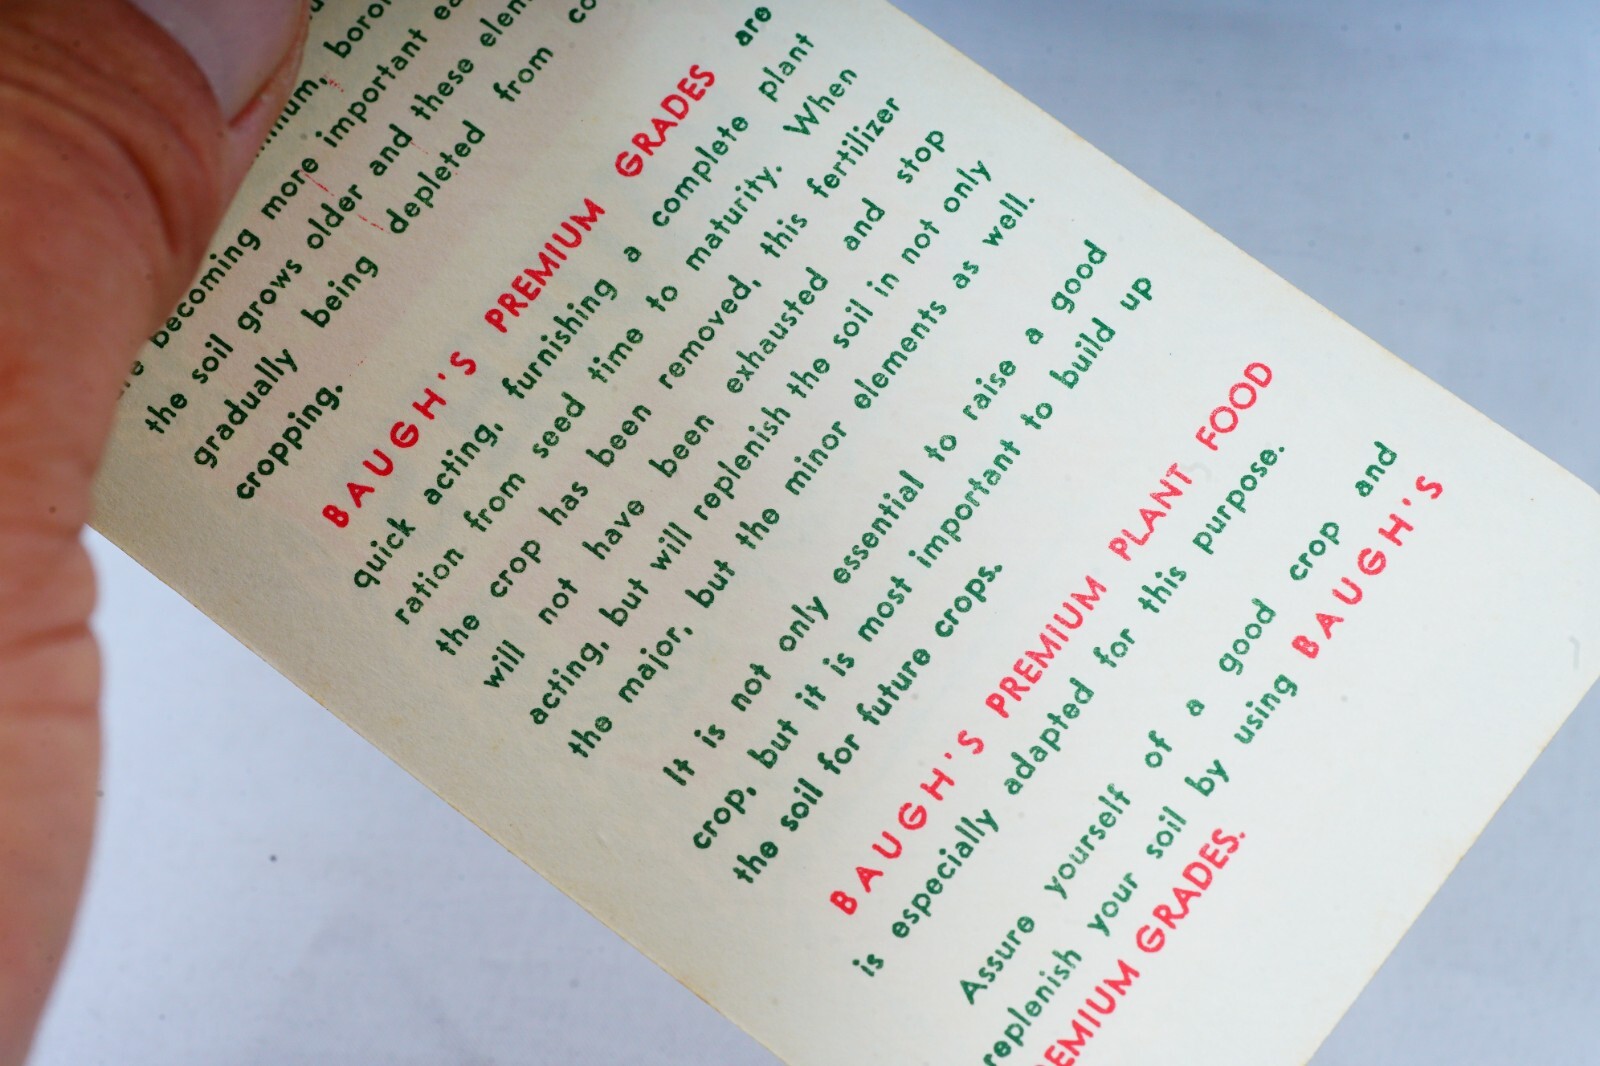 boron
becoming more important
the soil grows older and these
gradually being depleted from
cropping.
BAUGH'S PREMIUM GRADES are
quick acting, furnishing a complete plant
ration from seed time to maturity. When
the crop has been removed, this fertilizer
will not have been exhausted and stop
acting, but will replenish the soil in not only
the major, but the minor elements as well.
It is not only essential to raise a good
crop, but it is most important to build up
the soil for future crops.
BAUGH'S PREMIUM PLANT FOOD
is especially adapted for this purpose.
Assure yourself of a good crop and
replenish your soil by using BAUGH'S
PREMIUM GRADES.